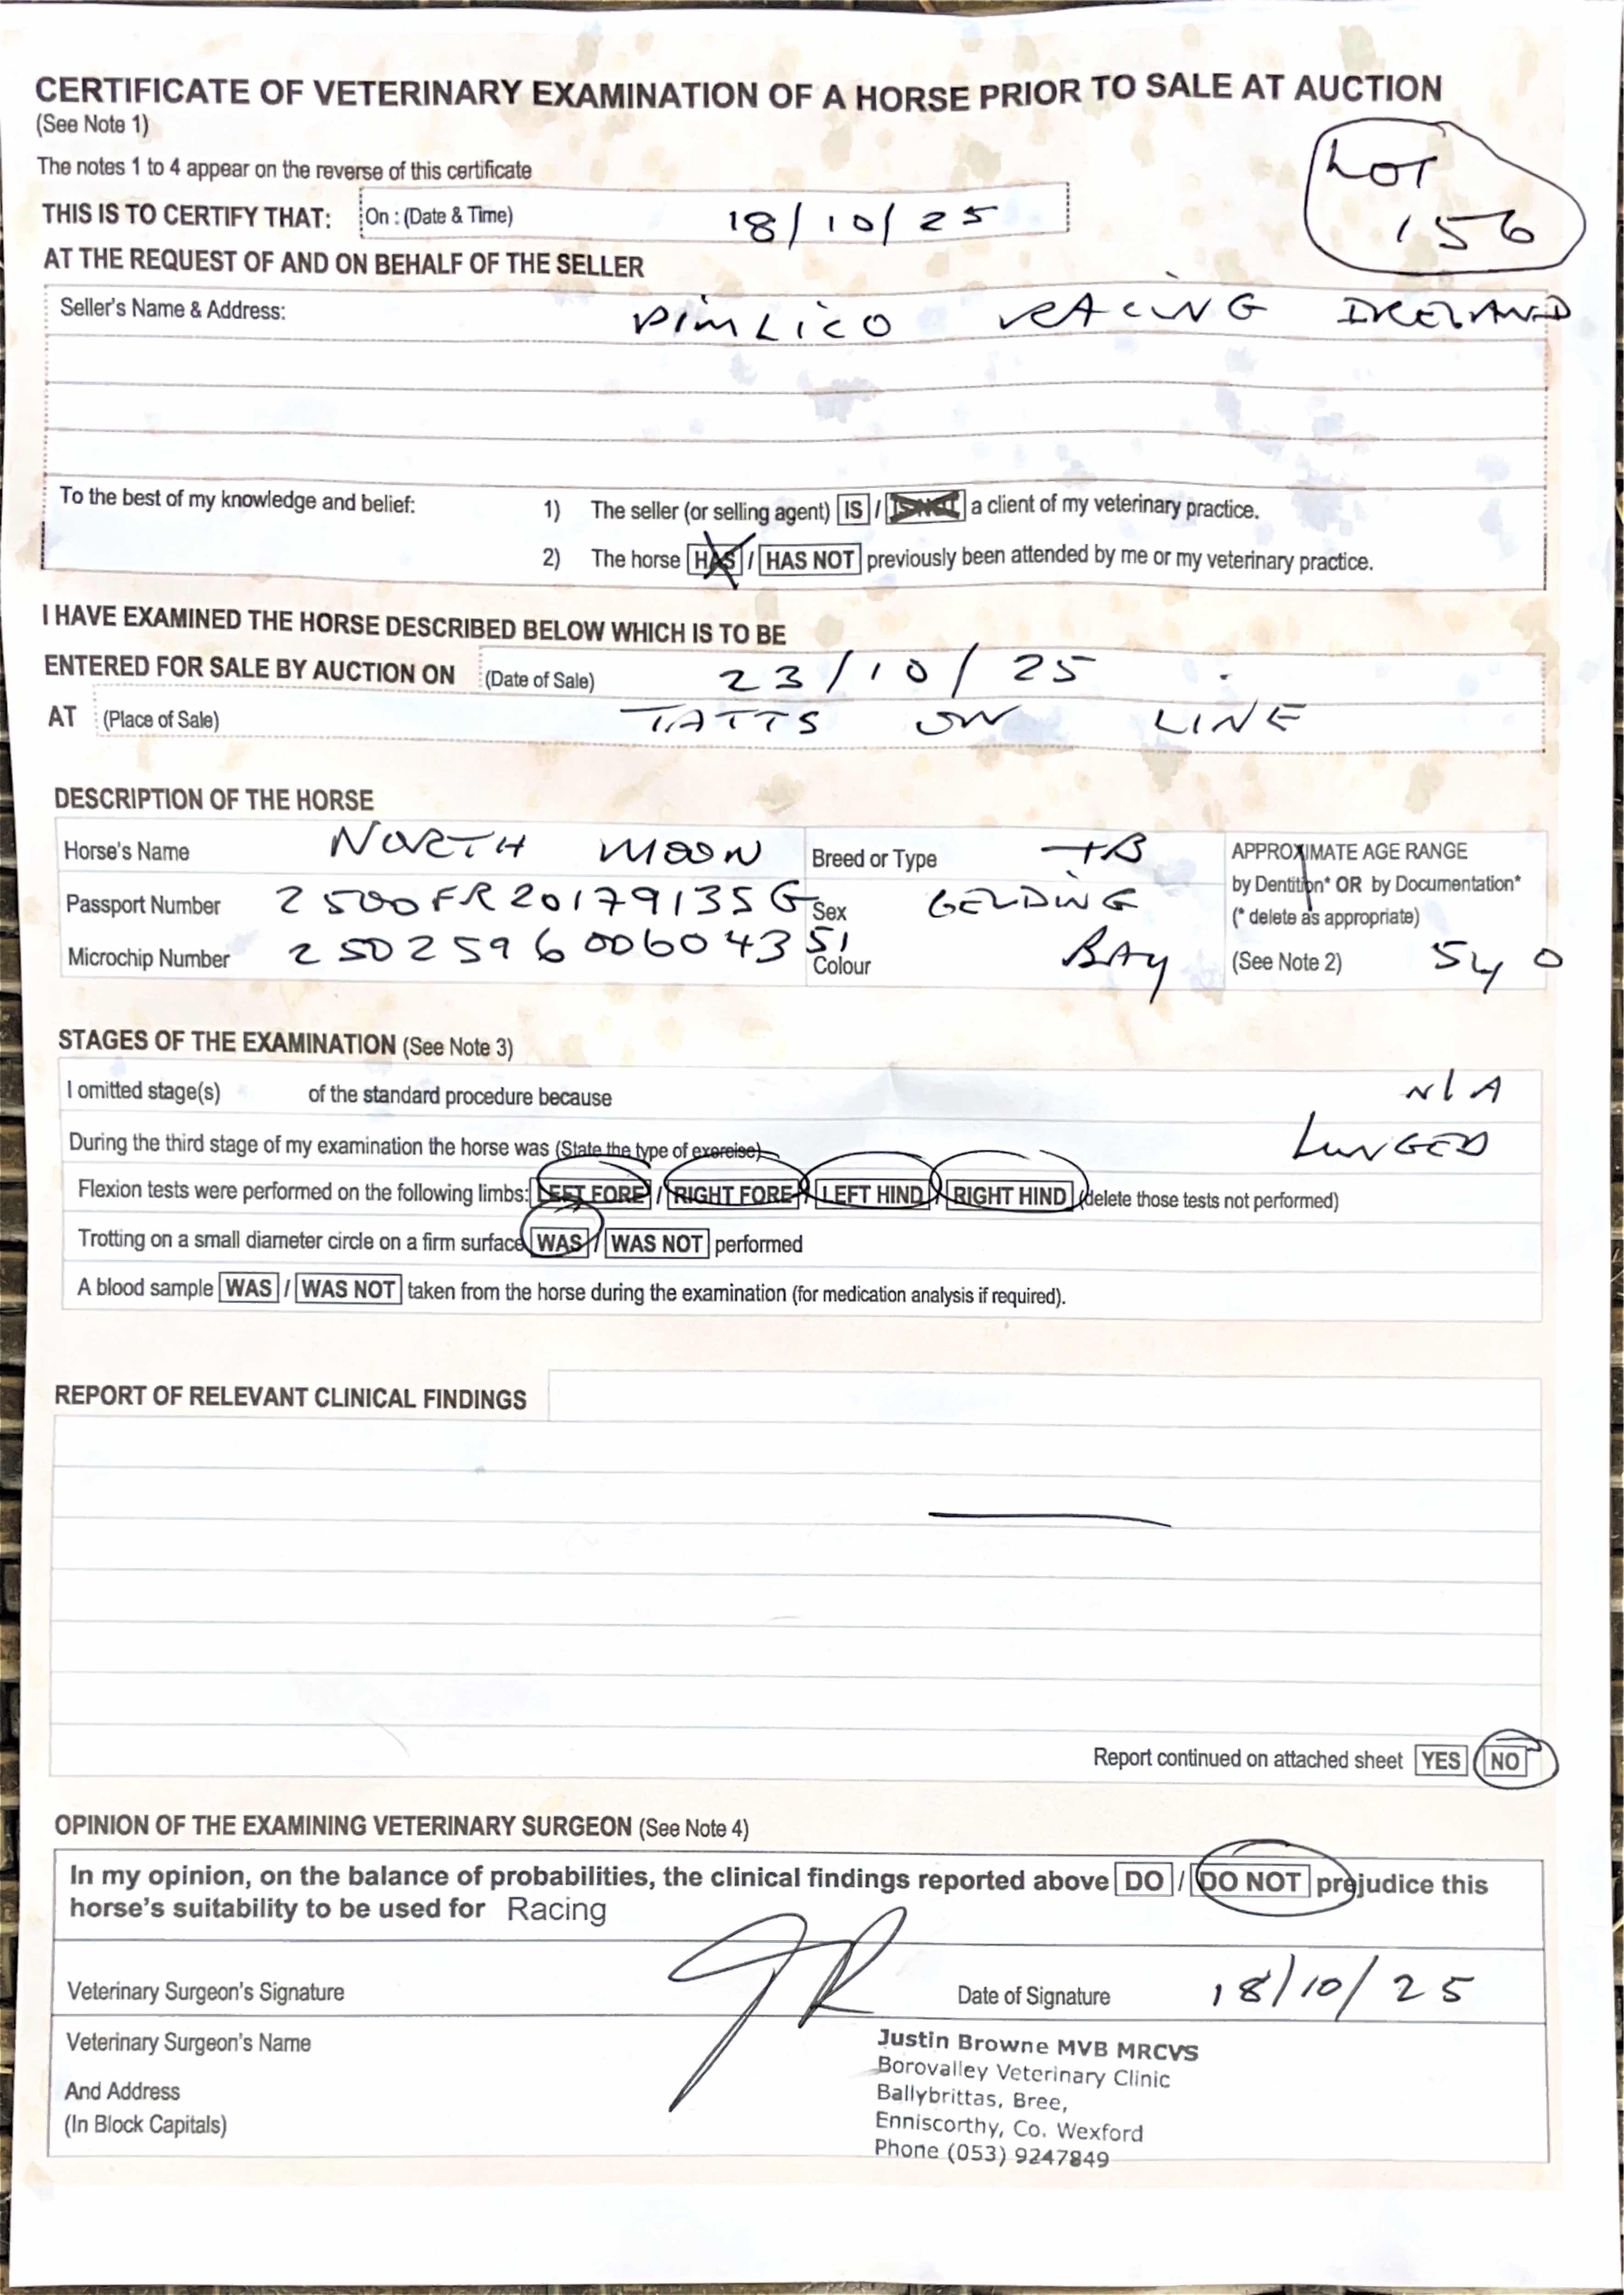 CERTIFICATE OF VETERINARY EXAMINATION OF A HORSE PRIOR TO SALE AT AUCTION
(See Note 1)
LOT
156
The notes 1 to 4 appear on the reverse of this certificate
THIS IS TO CERTIFY THAT: On : (Date & Time) 18/10/25
AT THE REQUEST OF AND ON BEHALF OF THE SELLER
Seller's Name & Address: PIMLICO RACING IRELAND
To the best of my knowledge and belief: 1) The seller (or selling agent) IS / IS NOT a client of my veterinary practice.
2) The horse HAS / HAS NOT previously been attended by me or my veterinary practice.
I HAVE EXAMINED THE HORSE DESCRIBED BELOW WHICH IS TO BE
ENTERED FOR SALE BY AUCTION ON (Date of Sale) 23/10/25
AT (Place of Sale) TATTS ON LINE
DESCRIPTION OF THE HORSE
Horse's Name NORTH MOON Breed or Type TB APPROXIMATE AGE RANGE
by Dentition* OR by Documentation*
Passport Number 2500FR20179135G Sex GELDING (* delete as appropriate)
Microchip Number 250259600604351 Colour BAY (See Note 2) 5yo
STAGES OF THE EXAMINATION (See Note 3)
I omitted stage(s) of the standard procedure because N/A
During the third stage of my examination the horse was (State the type of exercise) LUNGED
Flexion tests were performed on the following limbs: LEFT FORE / RIGHT FORE / LEFT HIND / RIGHT HIND (delete those tests not performed)
Trotting on a small diameter circle on a firm surface WAS / WAS NOT performed
A blood sample WAS / WAS NOT taken from the horse during the examination (for medication analysis if required).
REPORT OF RELEVANT CLINICAL FINDINGS
Report continued on attached sheet YES / NO
OPINION OF THE EXAMINING VETERINARY SURGEON (See Note 4)
In my opinion, on the balance of probabilities, the clinical findings reported above DO / DO NOT prejudice this
horse's suitability to be used for Racing
Veterinary Surgeon's Signature Date of Signature 18/10/25
Veterinary Surgeon's Name
And Address
(In Block Capitals)
Justin Browne MVB MRCVS
Borovalley Veterinary Clinic
Ballybrittas, Bree,
Enniscorthy, Co. Wexford
Phone (053) 9247849